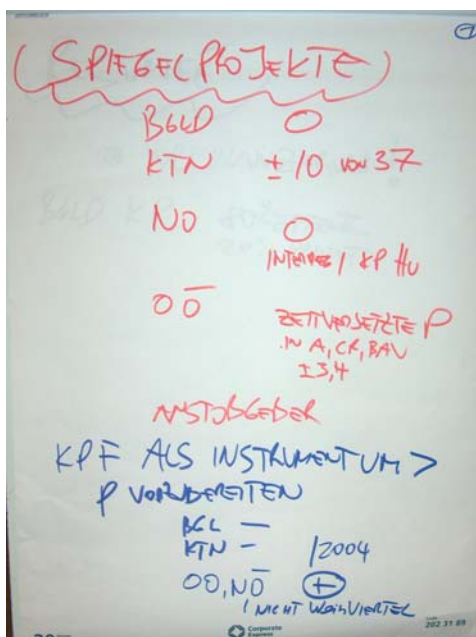 (SPIEGELPROJEKTE)
BGLD O
KTN ± 10 VON 37
NÖ O
INTERREG / KP HU
OÖ ZEITVERSETZTE P
IN A, CR, BAY
± 3,4
ANSTOßGEBER
KPF ALS INSTRUMENTUM >
P VORZUBEREITEN
BGL —
KTN — /2004
OÖ, NÖ +
/ NICHT WEINVIERTEL
Corporate Express
202 31 89